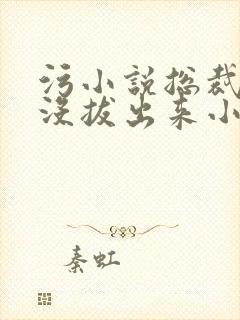 污小说总裁
没拔出来小
秦虹